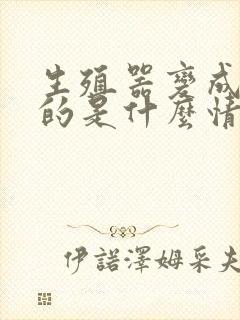 生殖器变成
的是什麼情
伊諾澤姆采夫